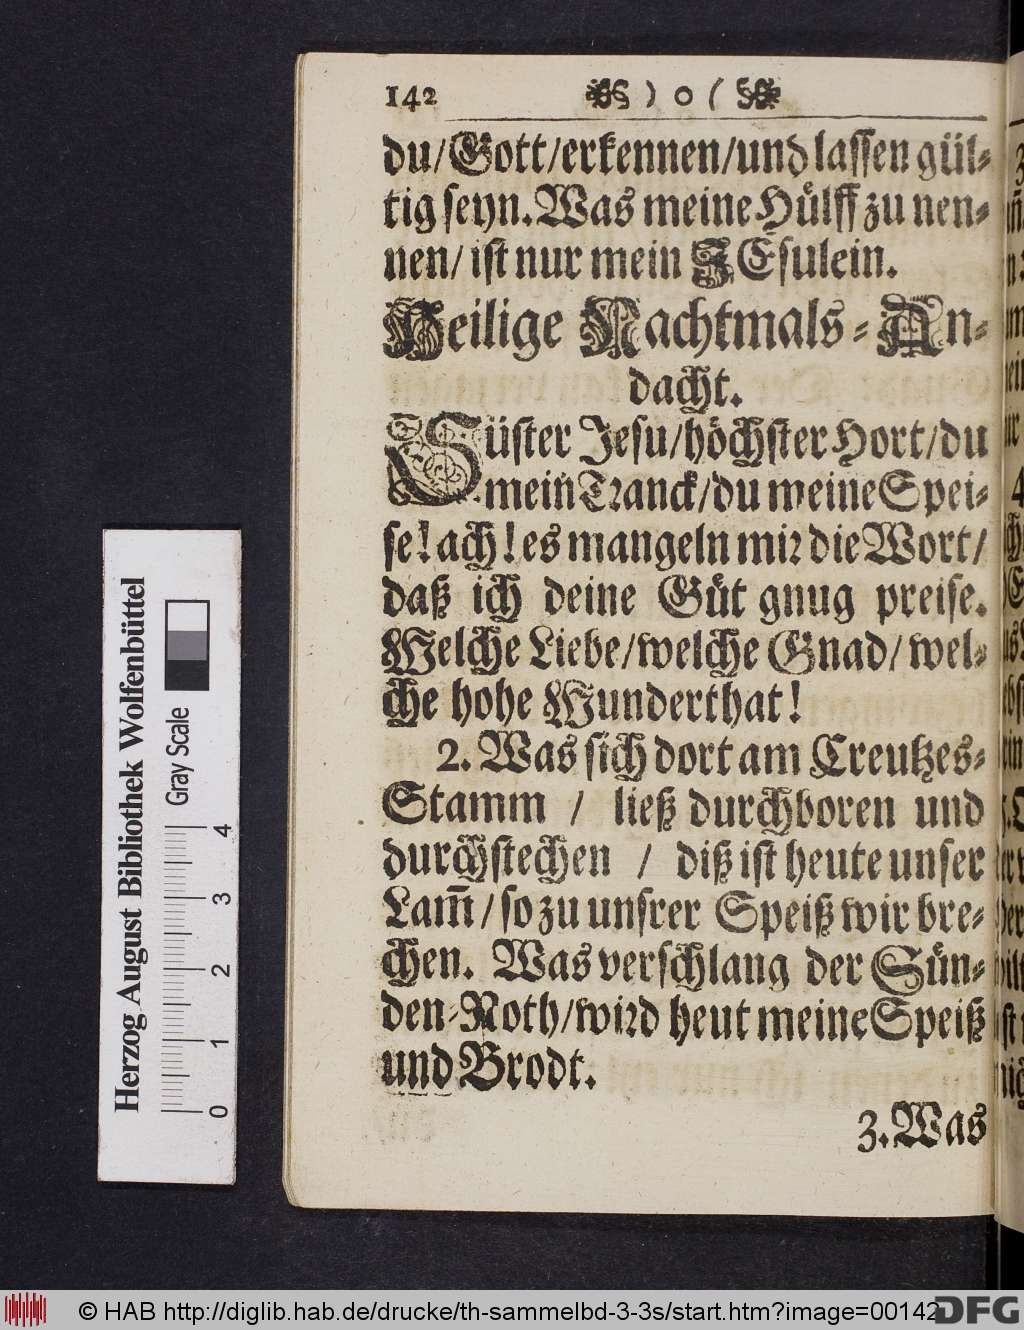 142 ) o (
du/Gott/erkennen/und lassen gül-
tig seyn. Was meine Hülff zu nen-
nen/ ist nur mein JEsulein.
Heilige Nachtmals-An-
dacht.
Süster Jesu/höchster Hort/du
mein Tranck/du meine Spei-
se! ach! es mangeln mir die Wort/
daß ich deine Güt gnug preise.
Welche Liebe/welche Gnad/wel-
che hohe Wunderthat!
2. Was sich dort am Creutzes-
Stamm / ließ durchboren und
durchstechen / diß ist heute unser
Lam̅/so zu unsrer Speiß wir bre-
chen. Was verschlang der Sün-
den-Roth/wird heut meine Speiß
und Brodt.
3. Was
Herzog August Bibliothek Wolfenbüttel
Gray Scale
0 1 2 3 4
© HAB http://diglib.hab.de/drucke/th-sammelbd-3-3s/start.htm?image=00142
DFG